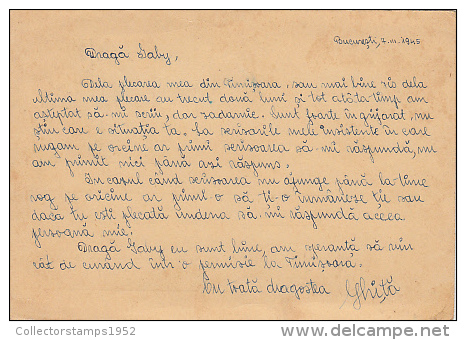 București, 7.III.1945
Dragă Gaby,
Dela plecarea mea din Timișoara, sau mai bine zis dela
ultima mea plecare au trecut două luni și tot atâta timp am
așteptat să-mi scrii, dar zadarnic. Sunt foarte îngrijorat, nu
știu care e situația ta. La scrisorile mele insistente în care
rugam pe oricine ar primi scrisoarea să-mi răspundă, nu
am primit nici până azi răspuns.
In cazul când scrisoarea nu ajunge până la tine
rog pe oricine ar primi-o să ți-o înmâneze ție sau
dacă tu ești plecată undeva să-mi răspundă aceea
persoană mie.
Dragă Gaby eu sunt bine, am speranță să vin
cât de curând într-o permisie la Timișoara.
Cu toată dragostea Ghiță
Collectorstamps1952
delcampe.net